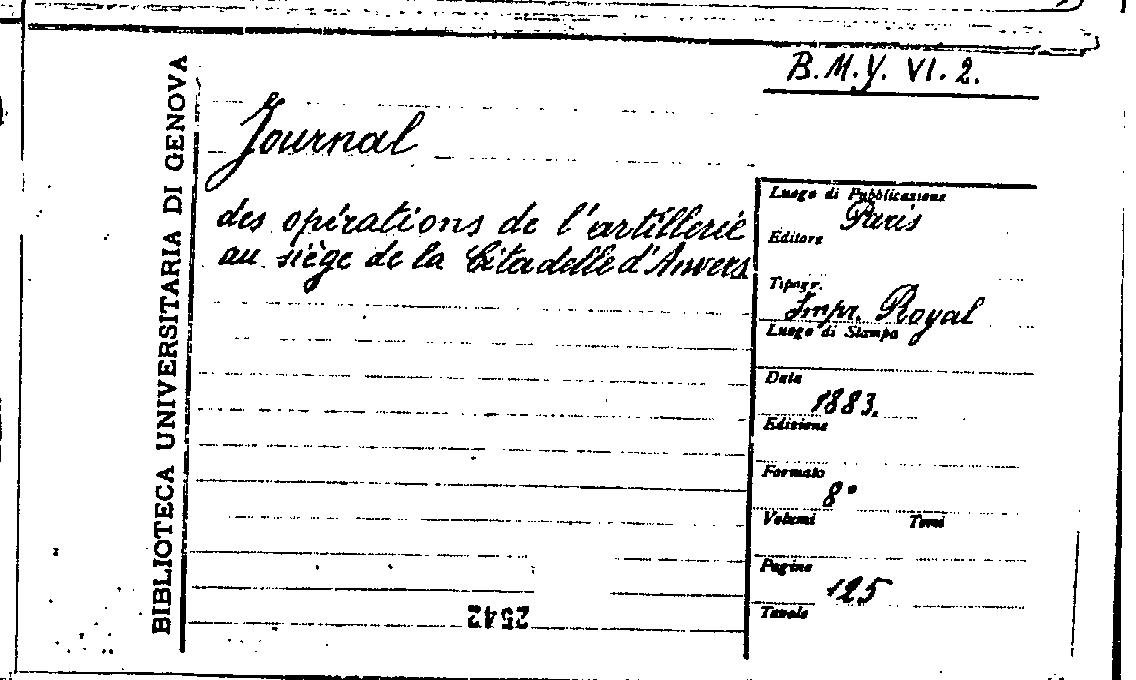 B.M.Y. VI. 2.
BIBLIOTECA UNIVERSITARIA DI GENOVA
Journal
des opérations de l'artillerie
au siège de la Citadelle d'Anvers
Luogo di Pubblicazione
Paris
Editore
Tipogr.
Impr. Royal
Luogo di Stampa
Data
1883.
Edizione
Formato
8°
Volumi Tomi
Pagine
125
Tavole
2542